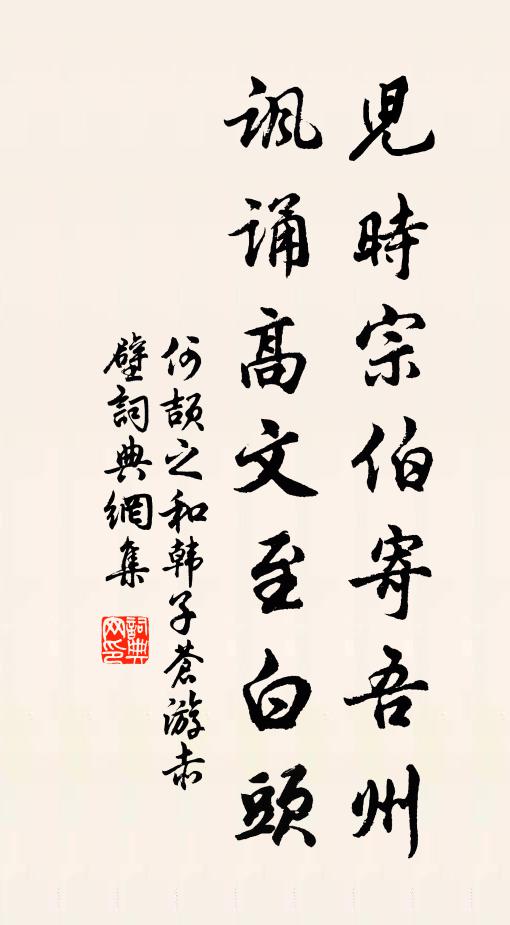 兒時宗伯寄吾州
諷誦高文至白頭
何頡之和韩子蒼游赤
壁詞典網集
詞典
网印